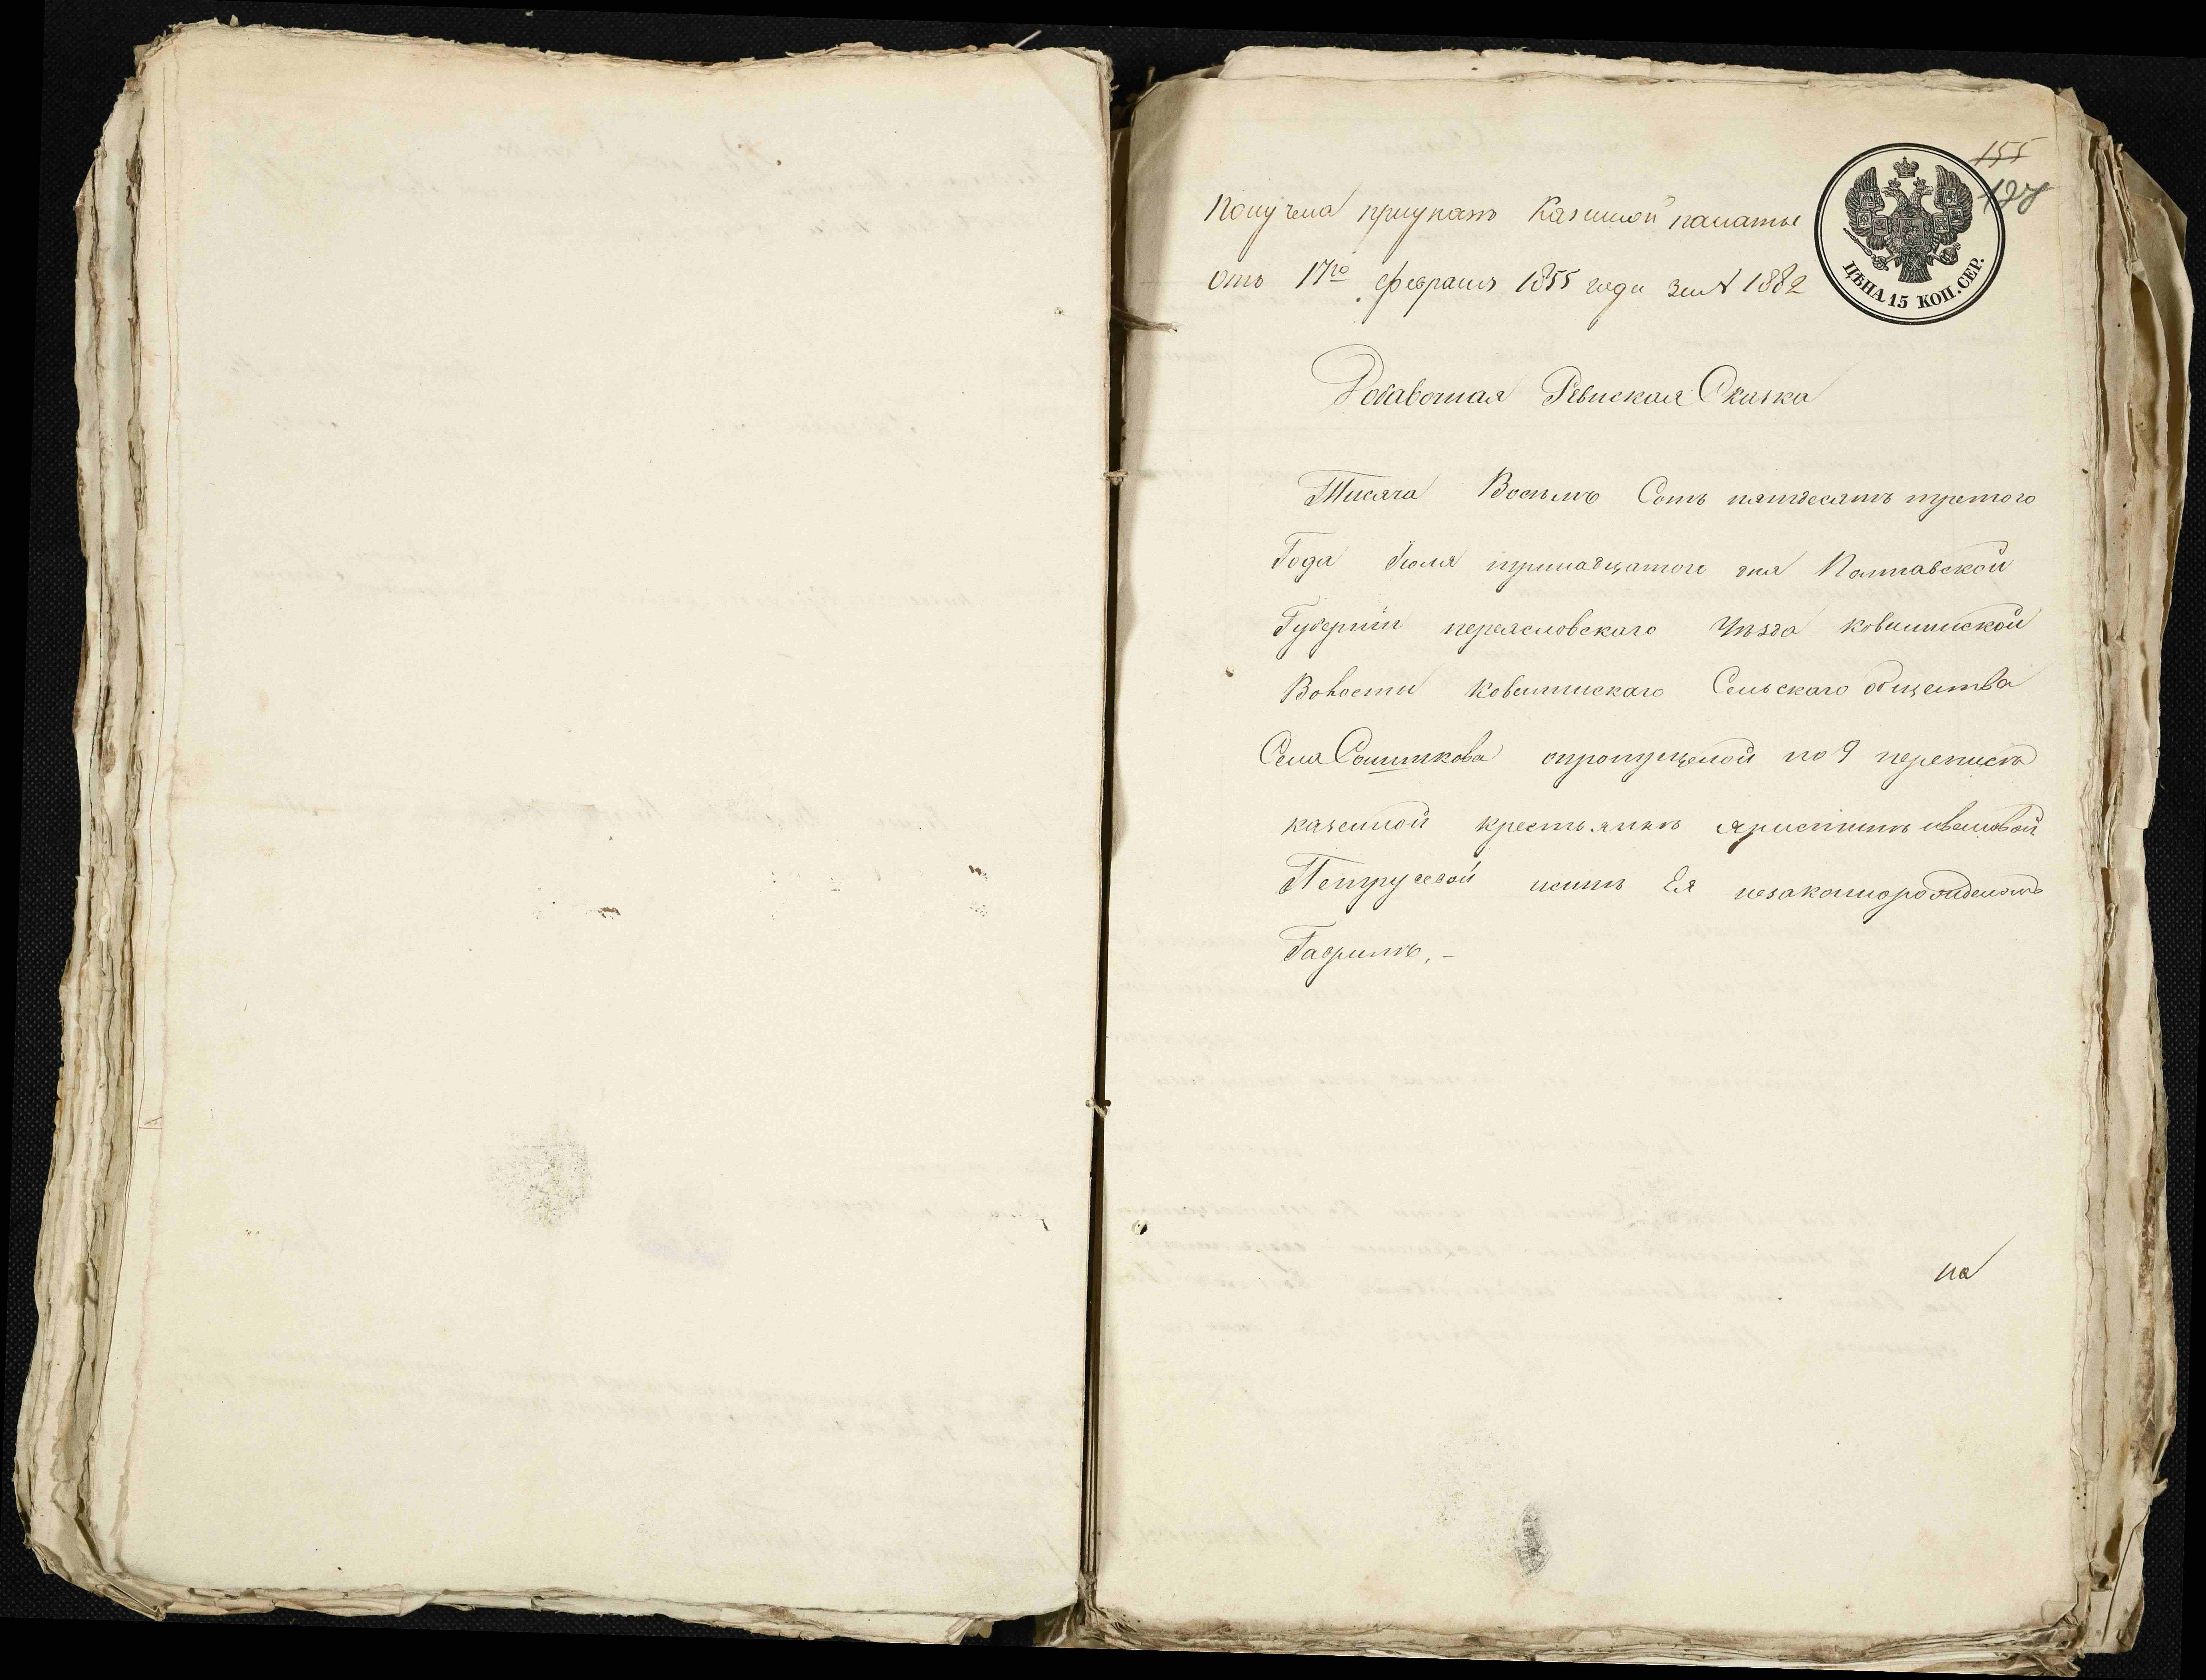 155
198
Получена приуказъ Казенной палаты
Отъ 17го февраля 1855 года за № 1882
ЦѢНА 15 КОП. СЕР.
Добавочная Ревиская Сказка
Тисяча Восьмъ Сотъ пятдесятъ третого
Года Июля тринадцатого дня Полтавской
Губернїи переясловскаго Уѣзда Ковалинской
Волости Ковалинскаго Сельскаго общества
Села Сошникова опропущеной по 9 переписѣ
казенной крестьянкѣ ивановой
исынѣ Ея незаконнорожденомъ
Гаврилѣ,-
на